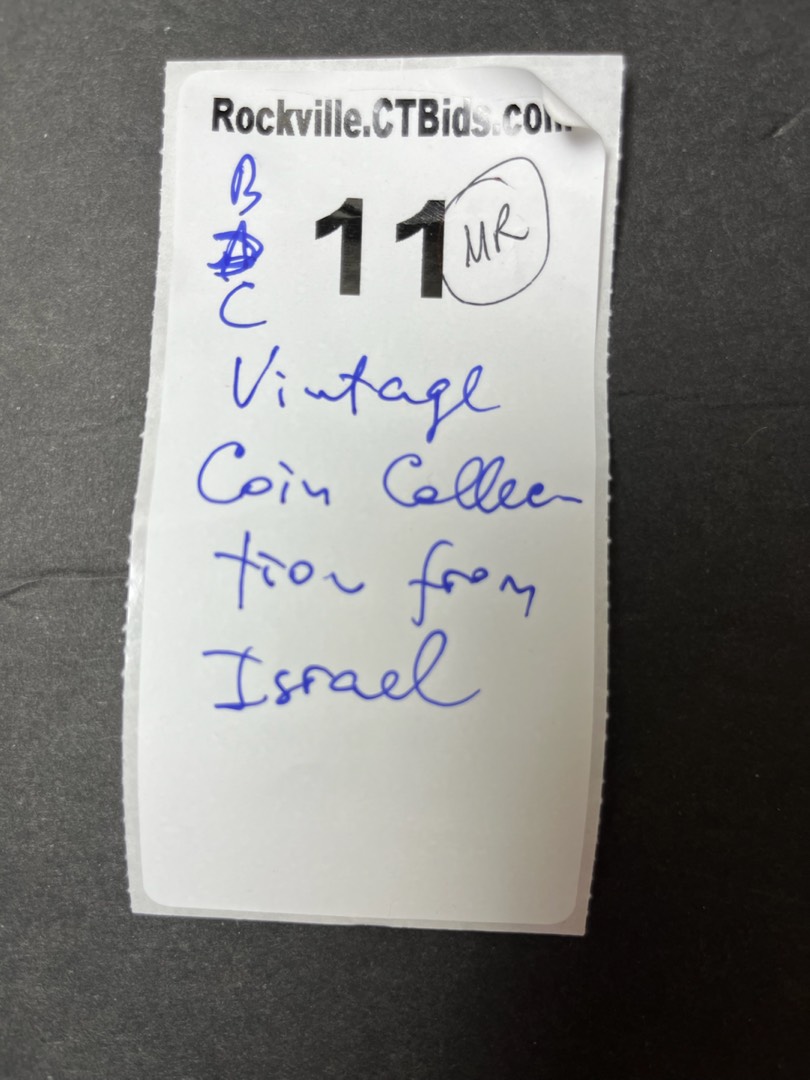 Rockville.CTBids.com
B
11 MR
C
Vintage
Coin Collec
tion from
Israel